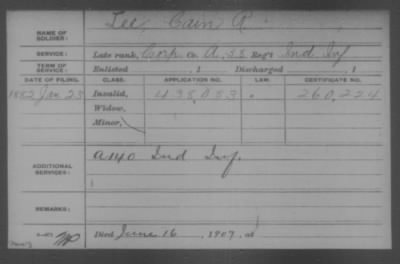 NAME OF SOLDIER: Lee, Cain R.
SERVICE: Late rank, Corp Co. A, 58 Reg't Ind Inf
TERM OF SERVICE: Enlisted , 1 Discharged , 1
DATE OF FILING. CLASS. APPLICATION NO. LAW. CERTIFICATE NO.
1882 Jan 23 Invalid, 438,053 260,224
Widow,
Minor,
ADDITIONAL SERVICES: A 140 Ind Inf.
REMARKS:
Died June 16, 1907, at